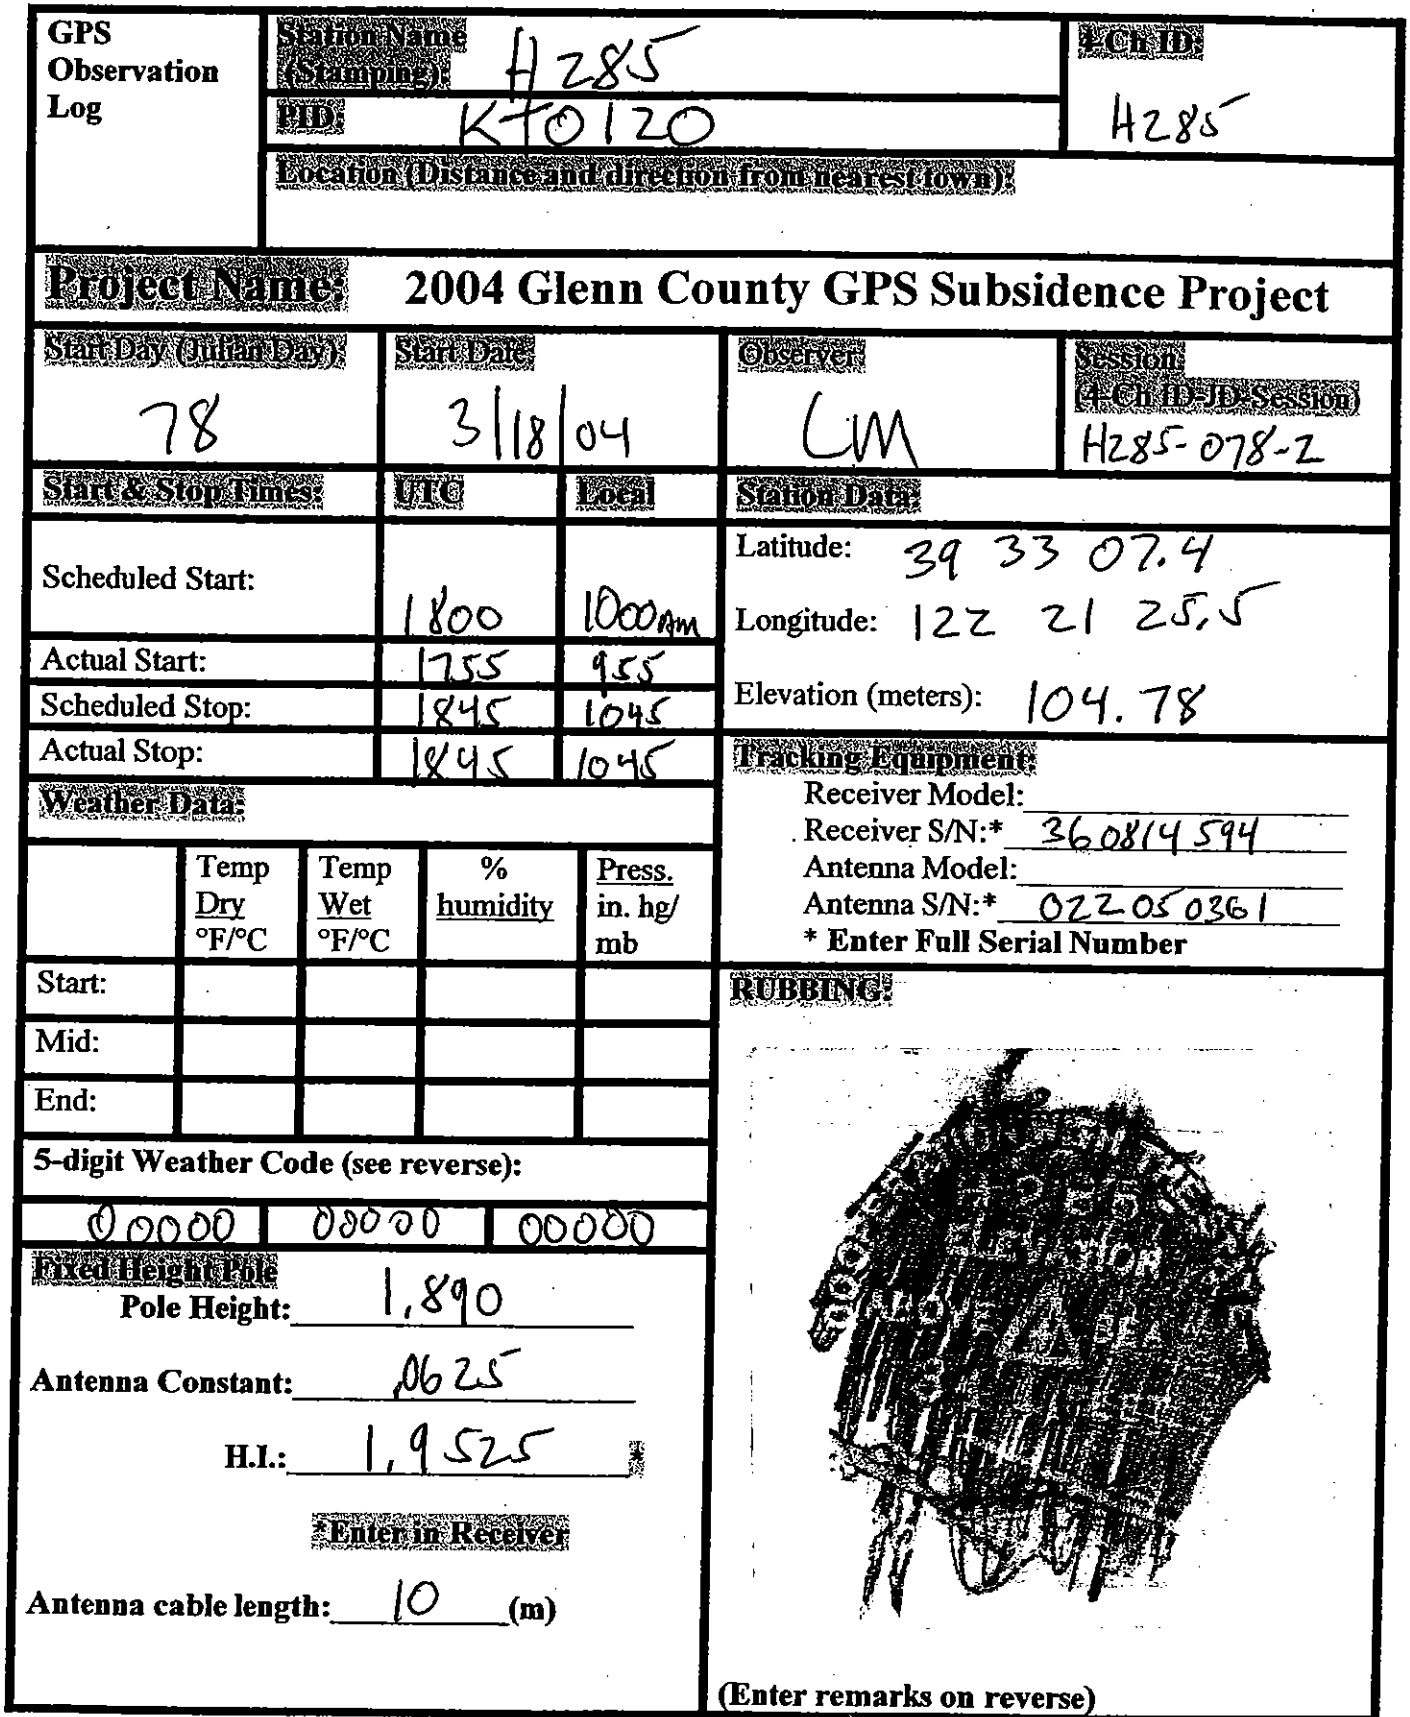 GPS
Observation
Log
Station Name
(Stamping): H 285
PID: KT0120
4-Ch ID:
H285
Location (Distance and direction from nearest town):
Project Name: 2004 Glenn County GPS Subsidence Project
Start Day (Julian Day)
78
Start Date
3/18/04
Observer
LM
Session:
(4-Ch ID-JD-Session)
H285-078-2
Start & Stop Times: UTC Local
Scheduled Start: 1800 1000 AM
Actual Start: 1755 955
Scheduled Stop: 1845 1045
Actual Stop: 1845 1045
Station Data:
Latitude: 39 33 07.4
Longitude: 122 21 25.5
Elevation (meters): 104.78
Tracking Equipment:
Receiver Model:
Receiver S/N:* 360814594
Antenna Model:
Antenna S/N:* 022050361
* Enter Full Serial Number
Weather Data:
Temp Dry °F/°C
Temp Wet °F/°C
% humidity
Press. in. hg/ mb
Start:
Mid:
End:
5-digit Weather Code (see reverse):
00000 00000 00000
Fixed Height Pole
Pole Height: 1.890
Antenna Constant: .0625
H.I.: 1.9525 *
*Enter in Receiver
Antenna cable length: 10 (m)
RUBBING:
(Enter remarks on reverse)